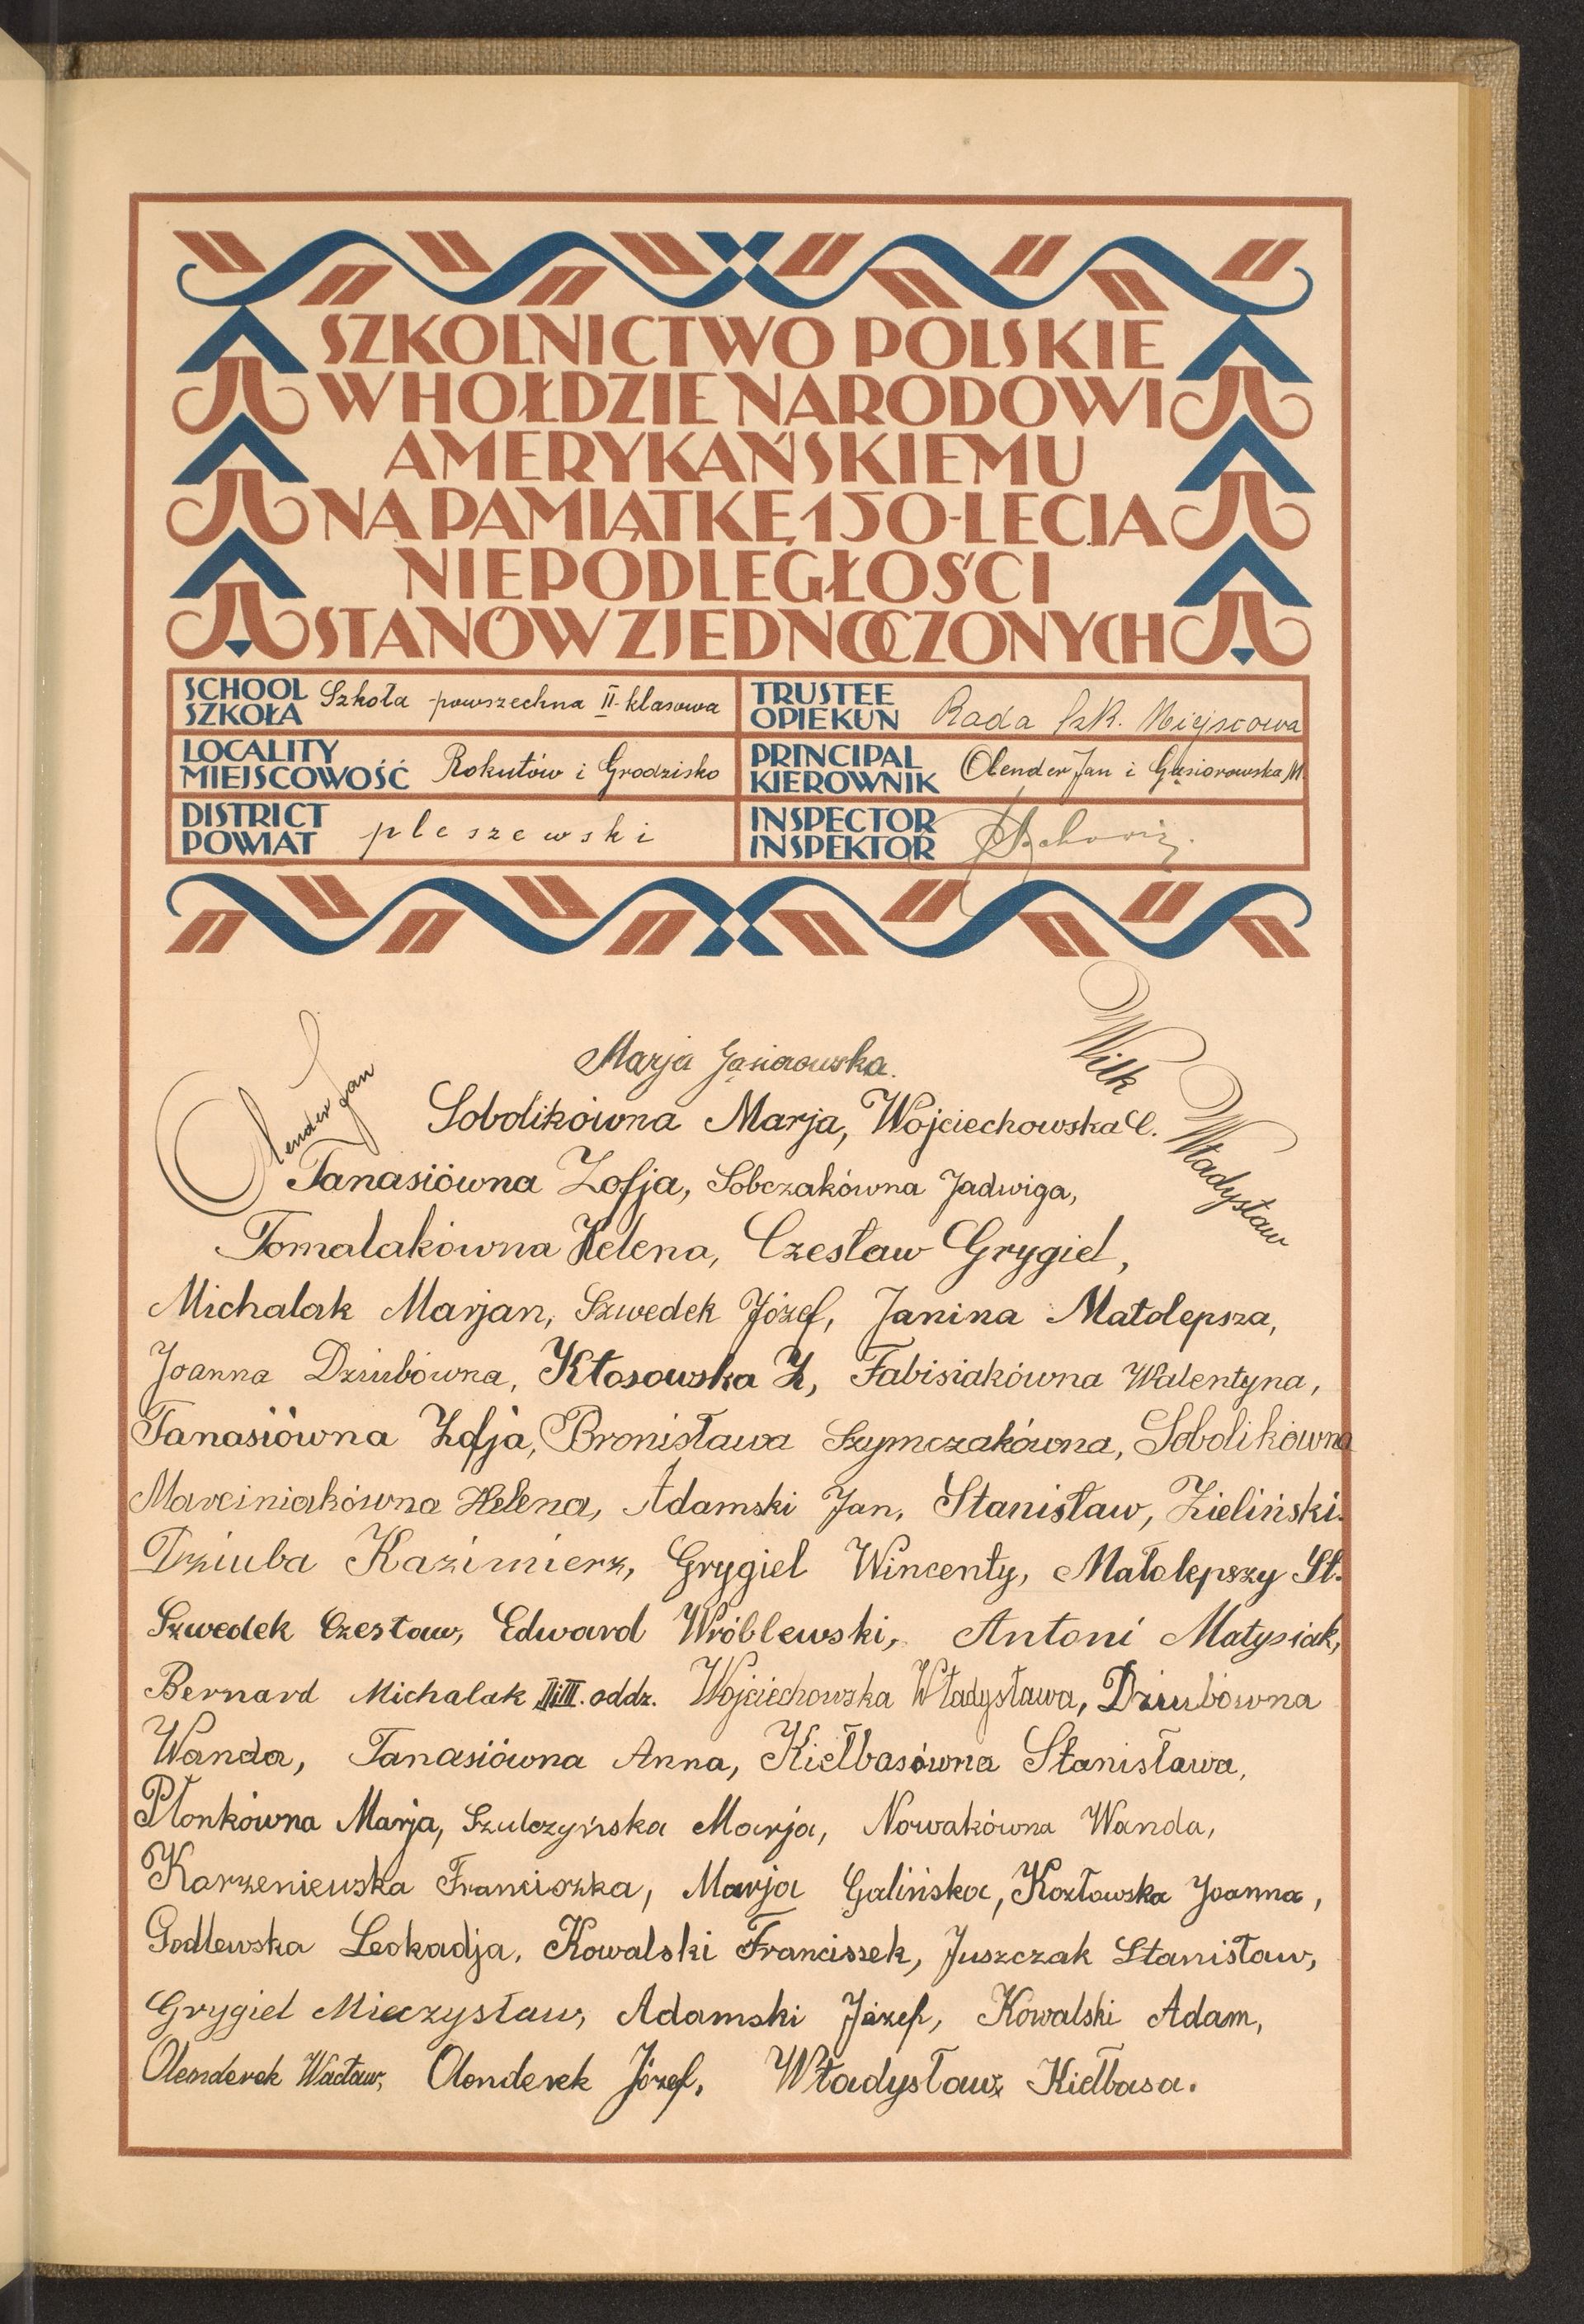 SZKOLNICTWO POLSKIE
W HOŁDZIE NARODOWI
AMERYKAŃSKIEMU
NA PAMIĄTKĘ 150-LECIA
NIEPODLEGŁOŚCI
STANÓW ZJEDNOCZONYCH
SCHOOL
SZKOŁA
Szkoła powszechna II-klasowa
TRUSTEE
OPIEKUN
Rada Szk. Miejscowa
LOCALITY
MIEJSCOWOŚĆ
Rokutów i Grodzisko
PRINCIPAL
KIEROWNIK
Olender Jan i Gąsiorowska M.
DISTRICT
POWIAT
pleszewski
INSPECTOR
INSPEKTOR
Olender Jan
Marja Gąsiorowska.
Wilk Władysław
Sobolikówna Marja, Wojciechowska C.
Tanasiówna Zofja, Sobczakówna Jadwiga,
Tomalakówna Helena, Czesław Grygiel,
Michalak Marjan, Szwedek Józef, Janina Małolepsza,
Joanna Dziubówna, Kłosowska Z, Fabisiakówna Walentyna,
Tanasiówna Zofja, Bronisława Szymczakówna, Sobolikówna
Marciniakówna Helena, Adamski Jan, Stanisław, Zieliński.
Dziuba Kazimierz, Grygiel Wincenty, Małolepszy St.
Szwedek Czesław, Edward Wróblewski, Antoni Matysiak,
Bernard Michalak II i III. oddz. Wojciechowska Władysława, Dziubówna
Wanda, Tanasiówna Anna, Kiełbasówna Stanisława,
Płonkówna Marja, Szulczyńska Marja, Nowakówna Wanda,
Korzeniewska Franciszka, Marja Galińska, Kozłowska Joanna,
Godlewska Leokadja, Kowalski Francissek, Juszczak Stanisław,
Grygiel Mieczysław, Adamski Józef, Kowalski Adam,
Olenderek Wacław, Olenderek Józef, Władysław Kiełbasa.